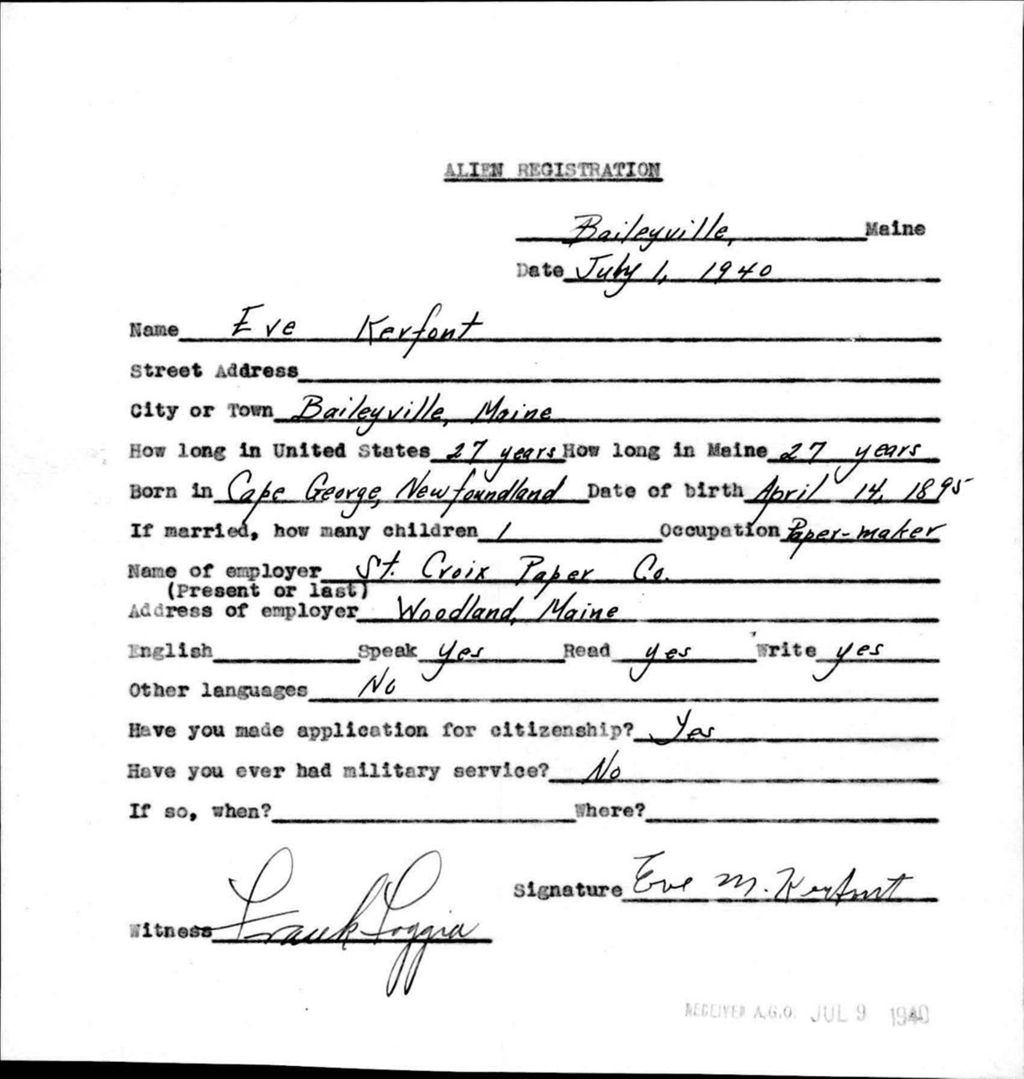 ALIEN REGISTRATION
Baileyville, Maine
Date July 1, 1940
Name Eve Kerfont
Street Address
City or Town Baileyville, Maine
How long in United States 27 years How long in Maine 27 years
Born in Cape George, Newfoundland Date of birth April 14, 1895
If married, how many children 1 Occupation Paper-maker
Name of employer St. Croix Paper Co.
(Present or last)
Address of employer Woodland, Maine
English Speak yes Read yes Write yes
Other languages No
Have you made application for citizenship? Yes
Have you ever had military service? No
If so, when? Where?
Signature Eve M. Kerfont
Witness Frank Loggia
RECEIVED A.G.O. JUL 9 1940